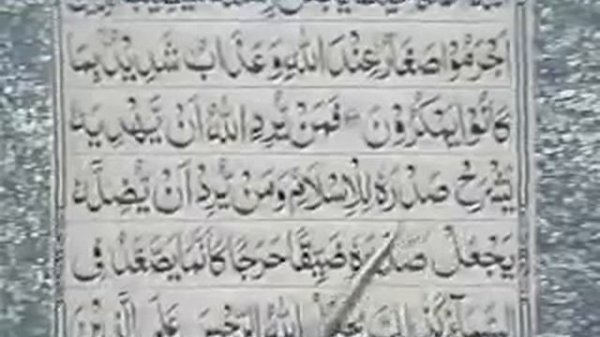 اَجْرَمُوْا صَغَارٌ عِنْدَ اللّٰهِ وَعَذَابٌ شَدِيْدٌۢ بِمَا
كَانُوْا يَمْكُرُوْنَ فَمَنْ يُّرِدِ اللّٰهُ اَنْ يَّهْدِيَهٗ
يَشْرَحْ صَدْرَهٗ لِلْاِسْلَامِ وَمَنْ يُّرِدْ اَنْ يُّضِلَّهٗ
يَجْعَلْ صَدْرَهٗ ضَيِّقًا حَرَجًا كَاَنَّمَا يَصَّعَّدُ فِى
السَّمَآءِ كَذٰلِكَ يَجْعَلُ اللّٰهُ الرِّجْسَ عَلَى الَّذِيْنَ